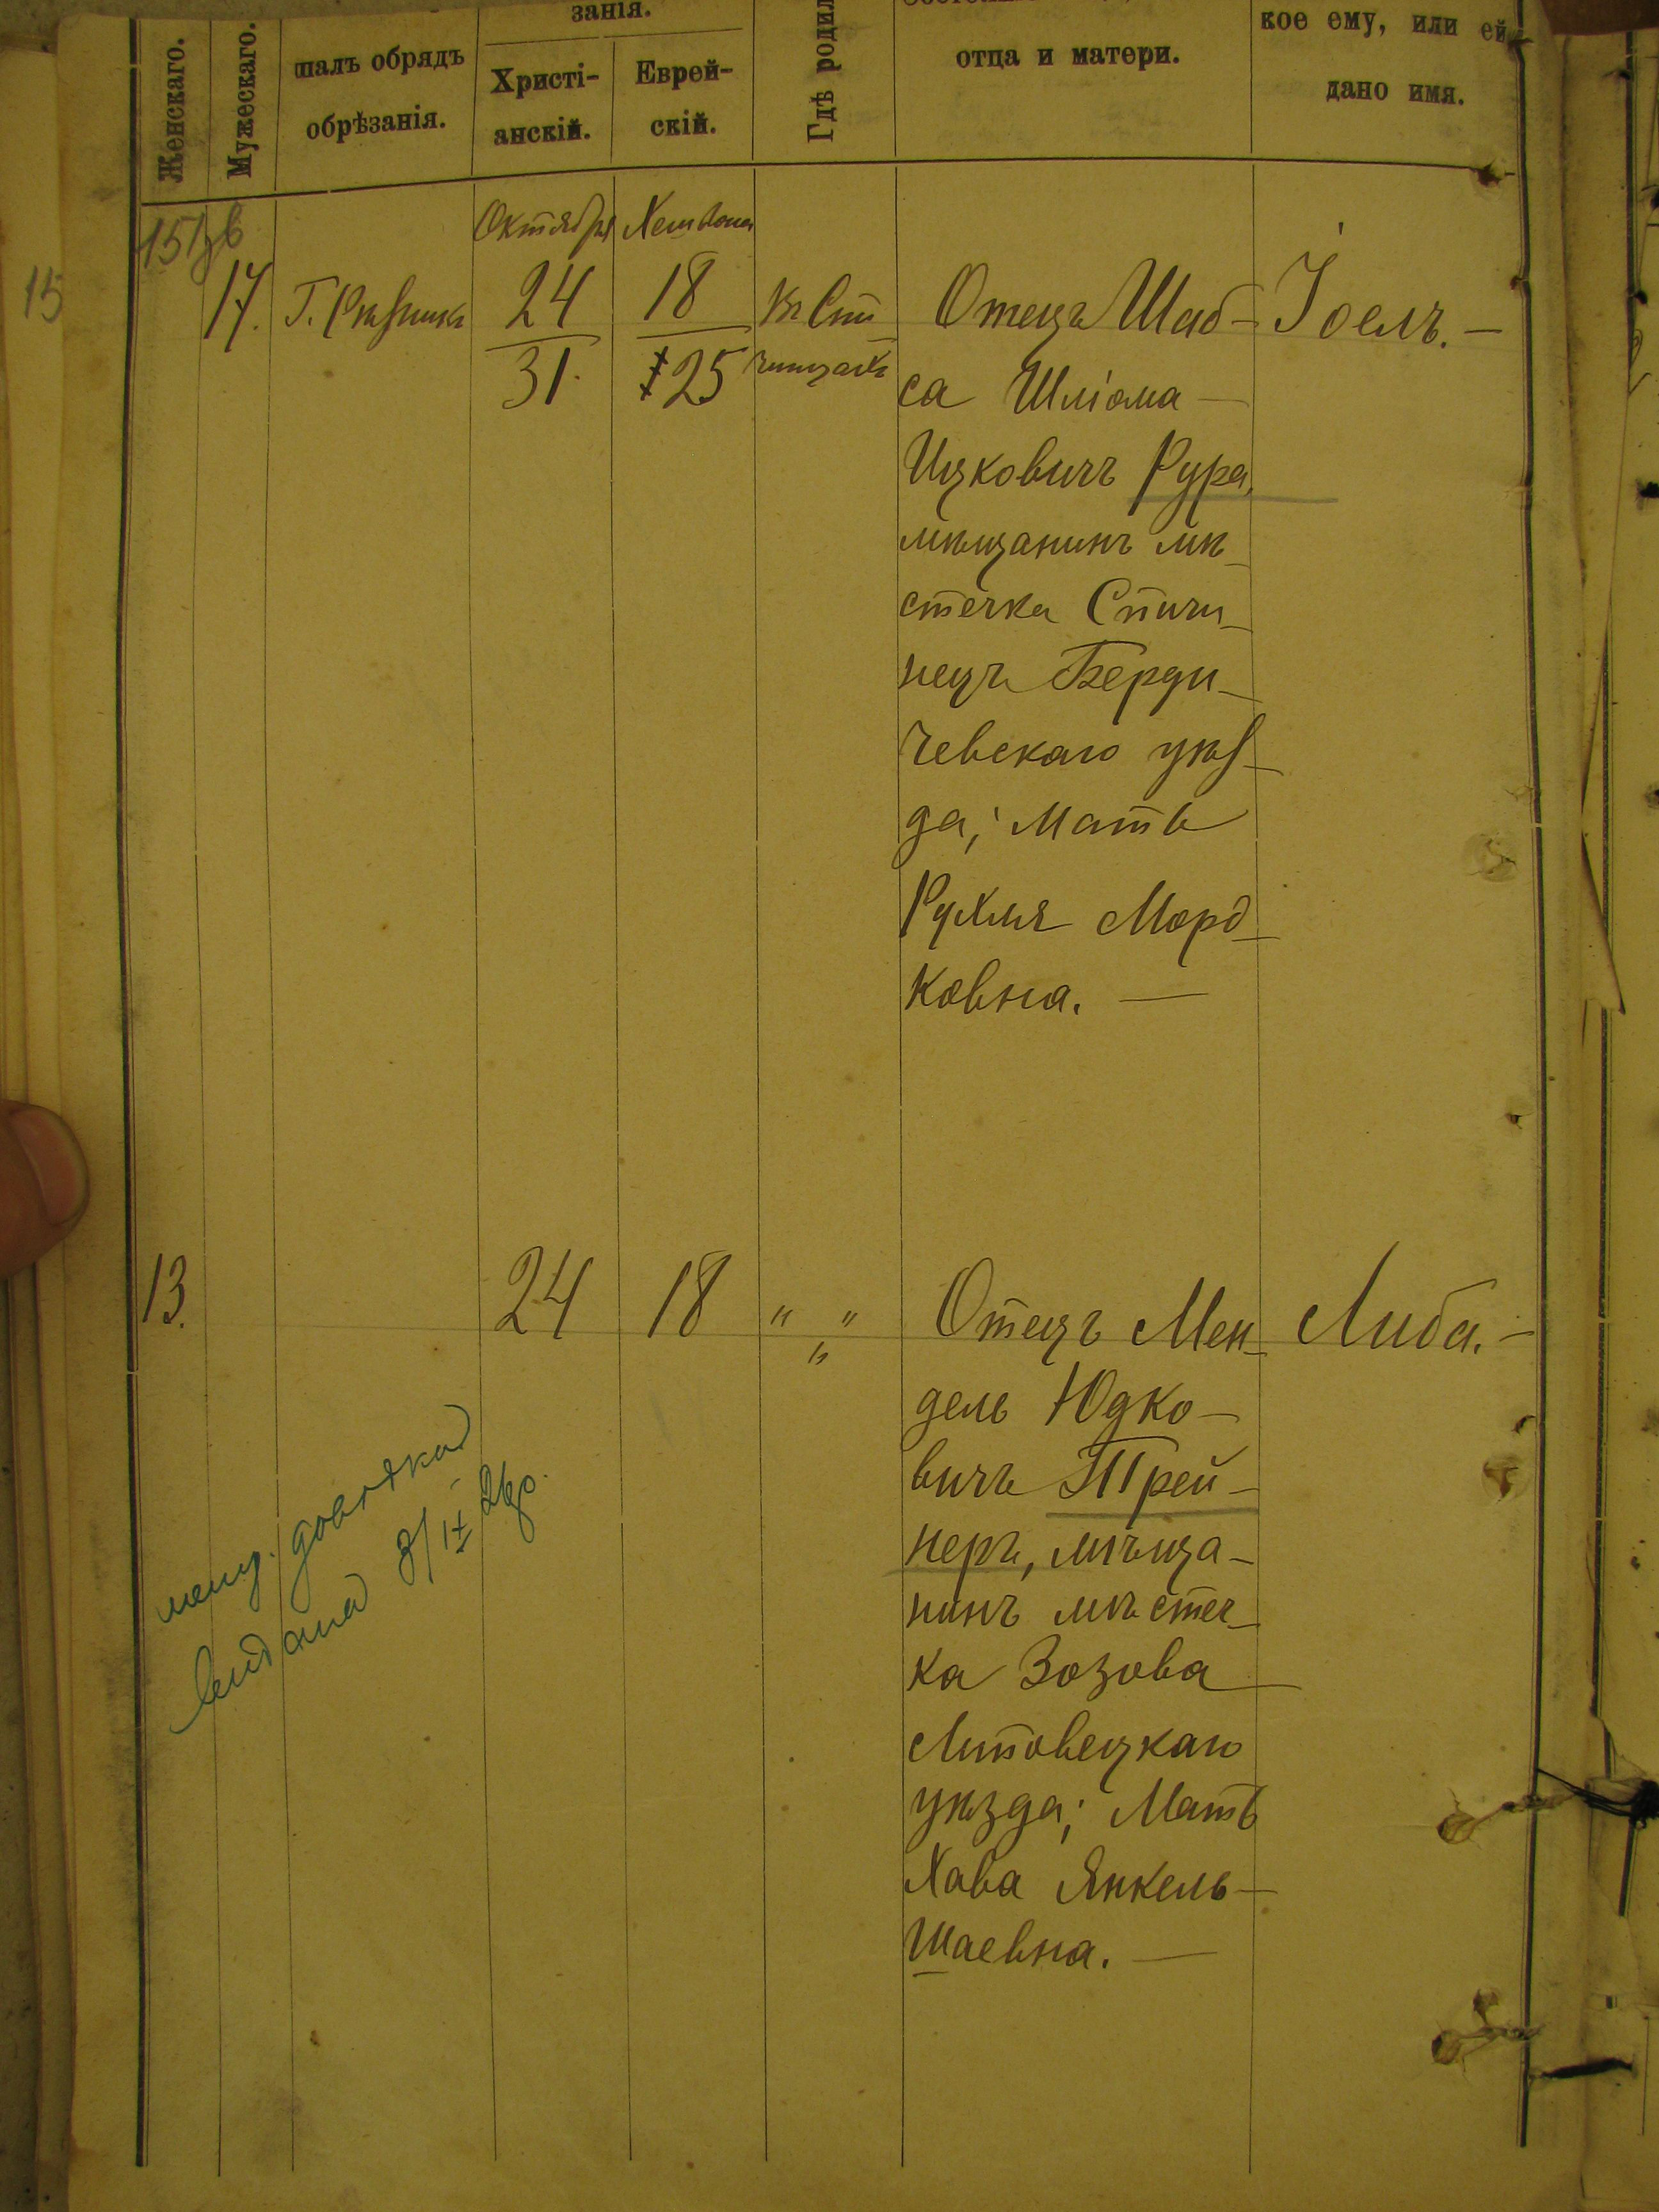 занія.
Женскаго.
Мужескаго.
шалъ обрядъ
обрѣзанія.
Христі-
анскій.
Еврей-
скій.
Гдѣ родил
отца и матери.
кое ему, или ей
дано имя.
15
Октября
17.
24
31.
18
25
Отецъ Шаб-
са Шліома
Ицковичъ Рура,
мѣщанинъ мѣ
стечка Спичи
нецъ Берди
чевскаго уѣз
да; Мать
Рухля Морд
ковна. —
Іоелъ. —
13.
24
18
" "
"
Отецъ Мен
дель Юдко-
вичъ Трей-
неръ, мѣща-
нинъ мѣстеч
ка Зозова
Липовецкаго
уѣзда; Мать
Хава Янкель-
Шаевна. —
Либа. —
видана